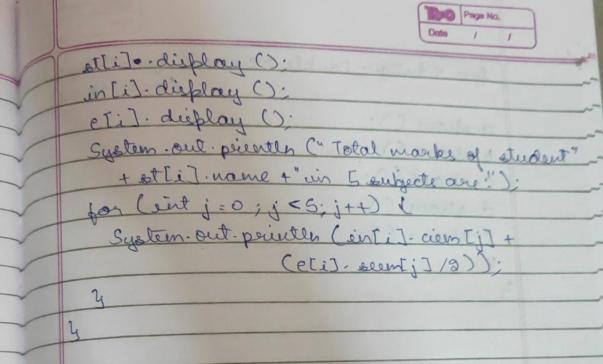 Page No.
Date / /
st[i].display ();
in[i].display ();
e[i].display ();
System.out.println ("Total marks of student"
+ st[i].name + "in 5 subjects are:");
for (int j=0 ; j<5; j++) {
System.out.println (in[i].ciem[j] +
(e[i].seem[j]/2));
}
}